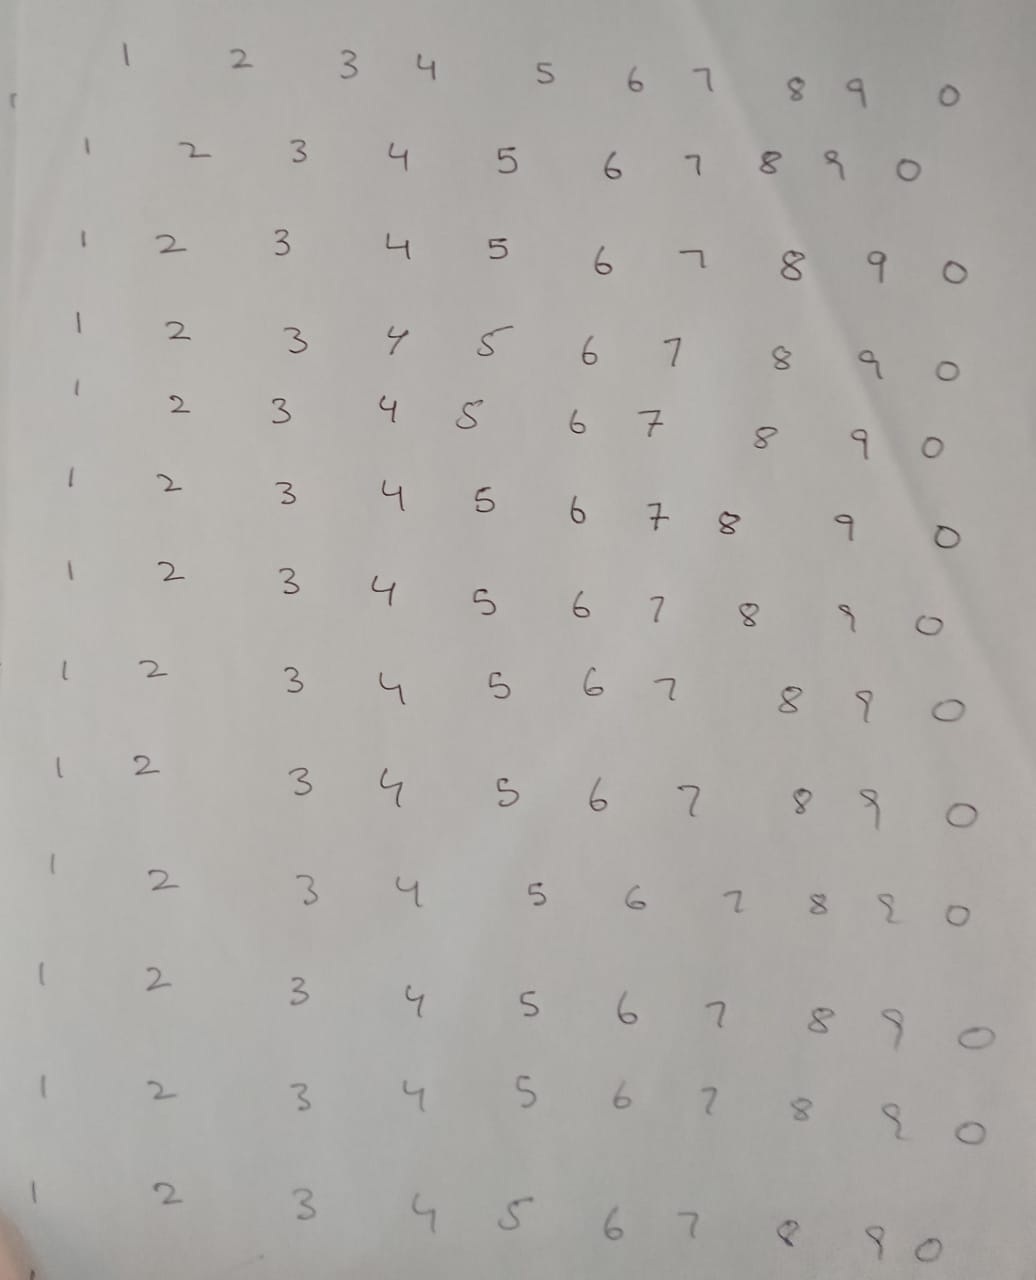 1 2 3 4 5 6 7 8 9 0
1 2 3 4 5 6 7 8 9 0
1 2 3 4 5 6 7 8 9 0
1 2 3 4 5 6 7 8 9 0
1 2 3 4 5 6 7 8 9 0
1 2 3 4 5 6 7 8 9 0
1 2 3 4 5 6 7 8 9 0
1 2 3 4 5 6 7 8 9 0
1 2 3 4 5 6 7 8 9 0
1 2 3 4 5 6 7 8 9 0
1 2 3 4 5 6 7 8 9 0
1 2 3 4 5 6 7 8 9 0
1 2 3 4 5 6 7 8 9 0